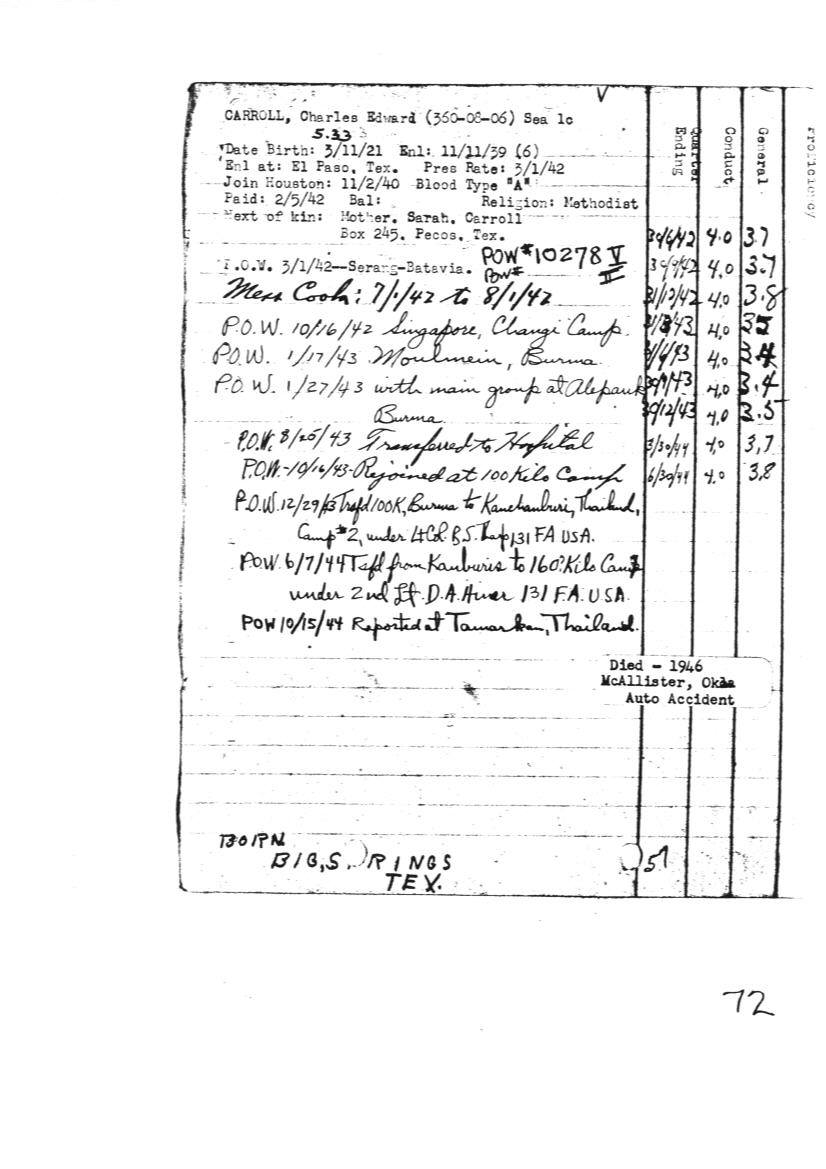 CARROLL, Charles Edward (360-08-06) Sea 1c
5.33
Date Birth: 3/11/21 Enl: 11/11/39 (6)
Enl at: El Paso, Tex. Pres Rate: 3/1/42
Join Houston: 11/2/40 Blood Type "A"
Paid: 2/5/42 Bal: Religion: Methodist
Next of kin: Mother, Sarah, Carroll
Box 245, Pecos, Tex.
POW#10278 V
POW# II
P.O.W. 3/1/42--Serang-Batavia.
Mess Cook: 7/1/42 to 8/1/42
P.O.W. 10/16/42 Singapore, Changi Camp.
P.O.W. 1/17/43 Moulmein, Burma.
P.O.W. 1/27/43 with main group at Alepauk
Burma.
P.O.W. 8/25/43 Transferred to Hospital
P.O.W.-10/16/43-Rejoined at 100 Kilo Camp
P.O.W. 12/29/43 Trsfd 100K, Burma to Kanchanburi, Thailand,
Camp #2, under Lt Col. B.S. 131 FA USA.
POW. 6/7/44 Tsfd from Kanburis to 160? Kilo Camp
under 2nd Lt. D.A. 131 F.A. USA.
POW 10/15/44 Reported at Tamarkan, Thailand.
Quarter Ending Conduct General
30/6/42 4.0 3.7
30/9/42 4.0 3.7
31/12/42 4.0 3.8
31/3/43 4.0 3.5
4.0 3.4
30/9/43 4.0 3.4
4.0 3.5
3/30/44 4.0 3.7
6/30/44 4.0 3.8
Died - 1946
McAllister, Okla
Auto Accident
BORN
BIG, S. RINGS
TEX.
51
72